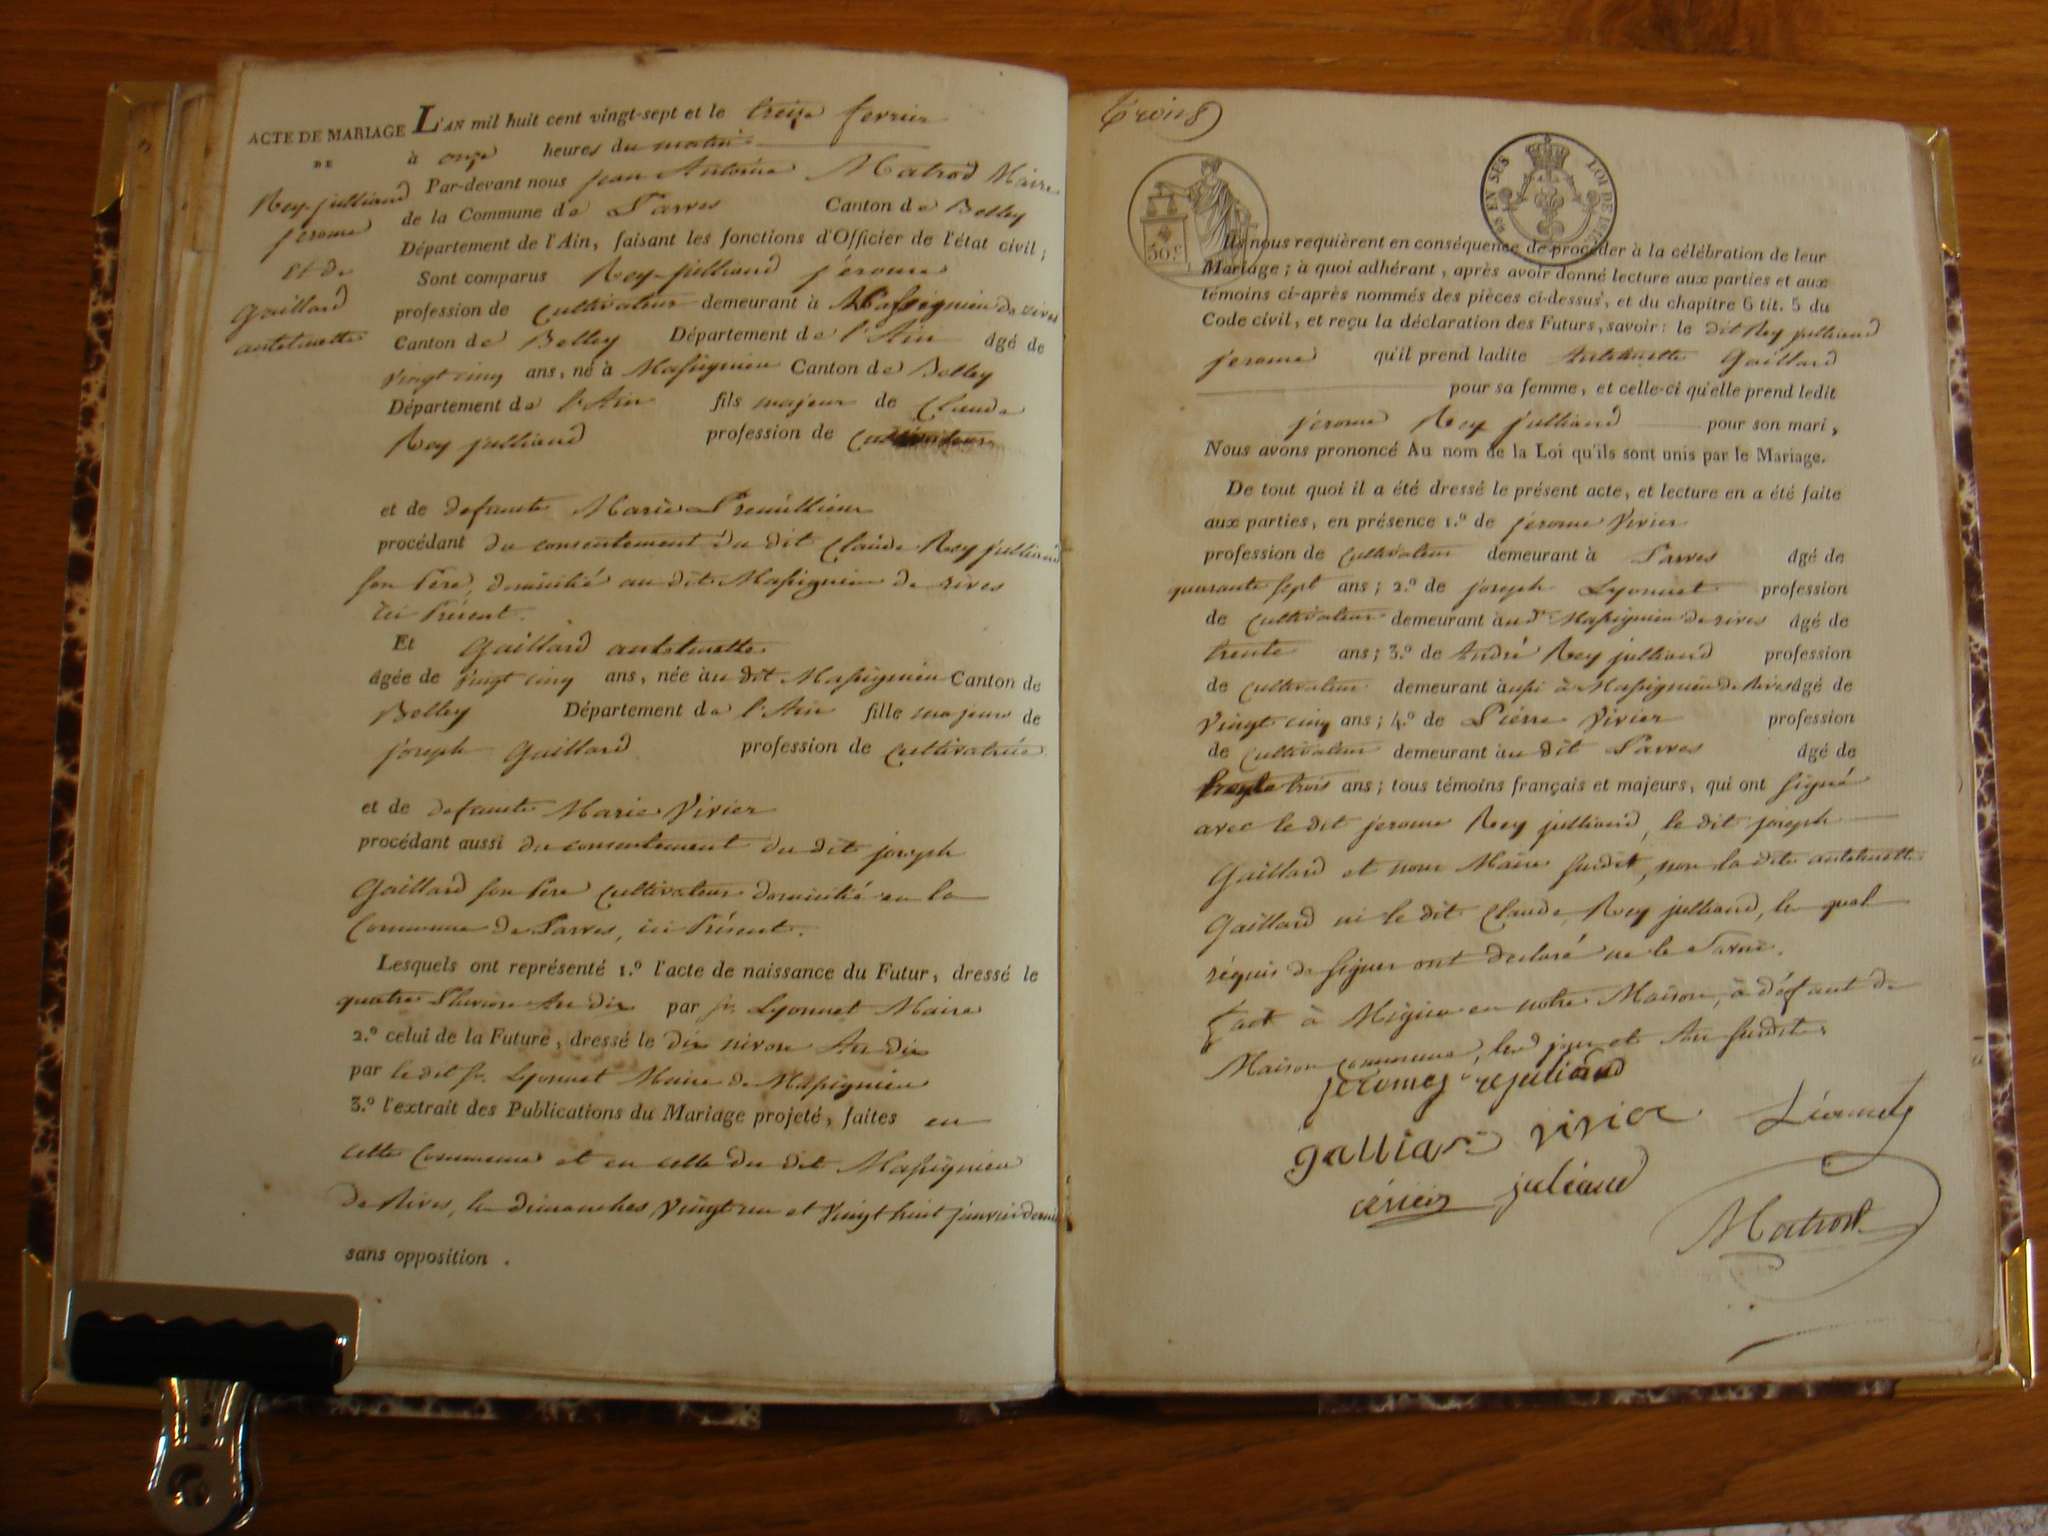 ACTE DE MARIAGE
DE
Rey-julliand
jerome
et de
Gaillard
antelmette
L'AN mil huit cent vingt-sept et le treize fevrier
à onze heures du matin
Par-devant nous jean Antoine Matrod Maire
de la Commune de Parves Canton de Belley
Département de l'Ain, faisant les fonctions d'Officier de l'état civil ;
Sont comparus Rey-julliand jerome
profession de Cultivateur demeurant à Massignieu de rives
Canton de Belley Département de l'Ain âgé de
vingt cinq ans, né à Massignieu Canton de Belley
Département de l'Ain fils majeur de Claude
Rey julliand profession de Cultivateur
et de defunte Marie
procédant du consentement du dit Claude Rey julliand
son Père, domicilié au dit Massignieu de rives
ici Présent.
Et Gaillard antelmette
âgée de vingt cinq ans, née au dit Massignieu Canton de
Belley Département de l'Ain fille majeure de
joseph Gaillard profession de Cultivateur
et de defunte Marie Vivier
procédant aussi du consentement du dit joseph
Gaillard son Père Cultivateur domicilié en la
Commune de Parves, ici Présent.
Lesquels ont représenté 1.º l'acte de naissance du Futur, dressé le
quatre Pluviose An dix par sr. Lyonnet Maire
2.º celui de la Future, dressé le dix nivose An dix
par le dit sr. Lyonnet Maire de Massignieu
3.º l'extrait des Publications du Mariage projeté, faites en
cette Commune et en celle du dit Massignieu
de Rives, les dimanches vingt un et vingt huit janvier dernier
sans opposition .
Trois
LOI DE
30c.
Ils nous requièrent en conséquence de procéder à la célébration de leur
Mariage ; à quoi adhérant, après avoir donné lecture aux parties et aux
témoins ci-après nommés des pièces ci-dessus, et du chapitre 6 tit. 5 du
Code civil, et reçu la déclaration des Futurs, savoir : le dit Rey julliand
jerome qu'il prend ladite Antelmette Gaillard
pour sa femme, et celle-ci qu'elle prend ledit
jerome Rey julliand pour son mari,
Nous avons prononcé Au nom de la Loi qu'ils sont unis par le Mariage.
De tout quoi il a été dressé le présent acte, et lecture en a été faite
aux parties, en présence 1.º de jerome Vivier
profession de Cultivateur demeurant à Parves âgé de
quarante sept ans ; 2.º de joseph Lyonnet profession
de Cultivateur demeurant au dt Massignieu de rives âgé de
trente ans ; 3.º de André Rey julliand profession
de Cultivateur demeurant aussi à Massignieu de Rives âgé de
vingt cinq ans ; 4.º de Pierre Vivier profession
de Cultivateur demeurant au dit Parves âgé de
trente trois ans ; tous témoins français et majeurs, qui ont signé
avec le dit jerome Rey julliand, le dit joseph
Gaillard et nous Maire susdit, non la dite antelmette
Gaillard ni le dit Claude Rey julliand, le quel
réquis de signer ont declaré ne le savoir.
fait à en notre Maison, à défaut de
Maison commune, les jour et An susdits.
jerome rejuliand
galliard vivier Léonnet
vivier juliand
Matrod